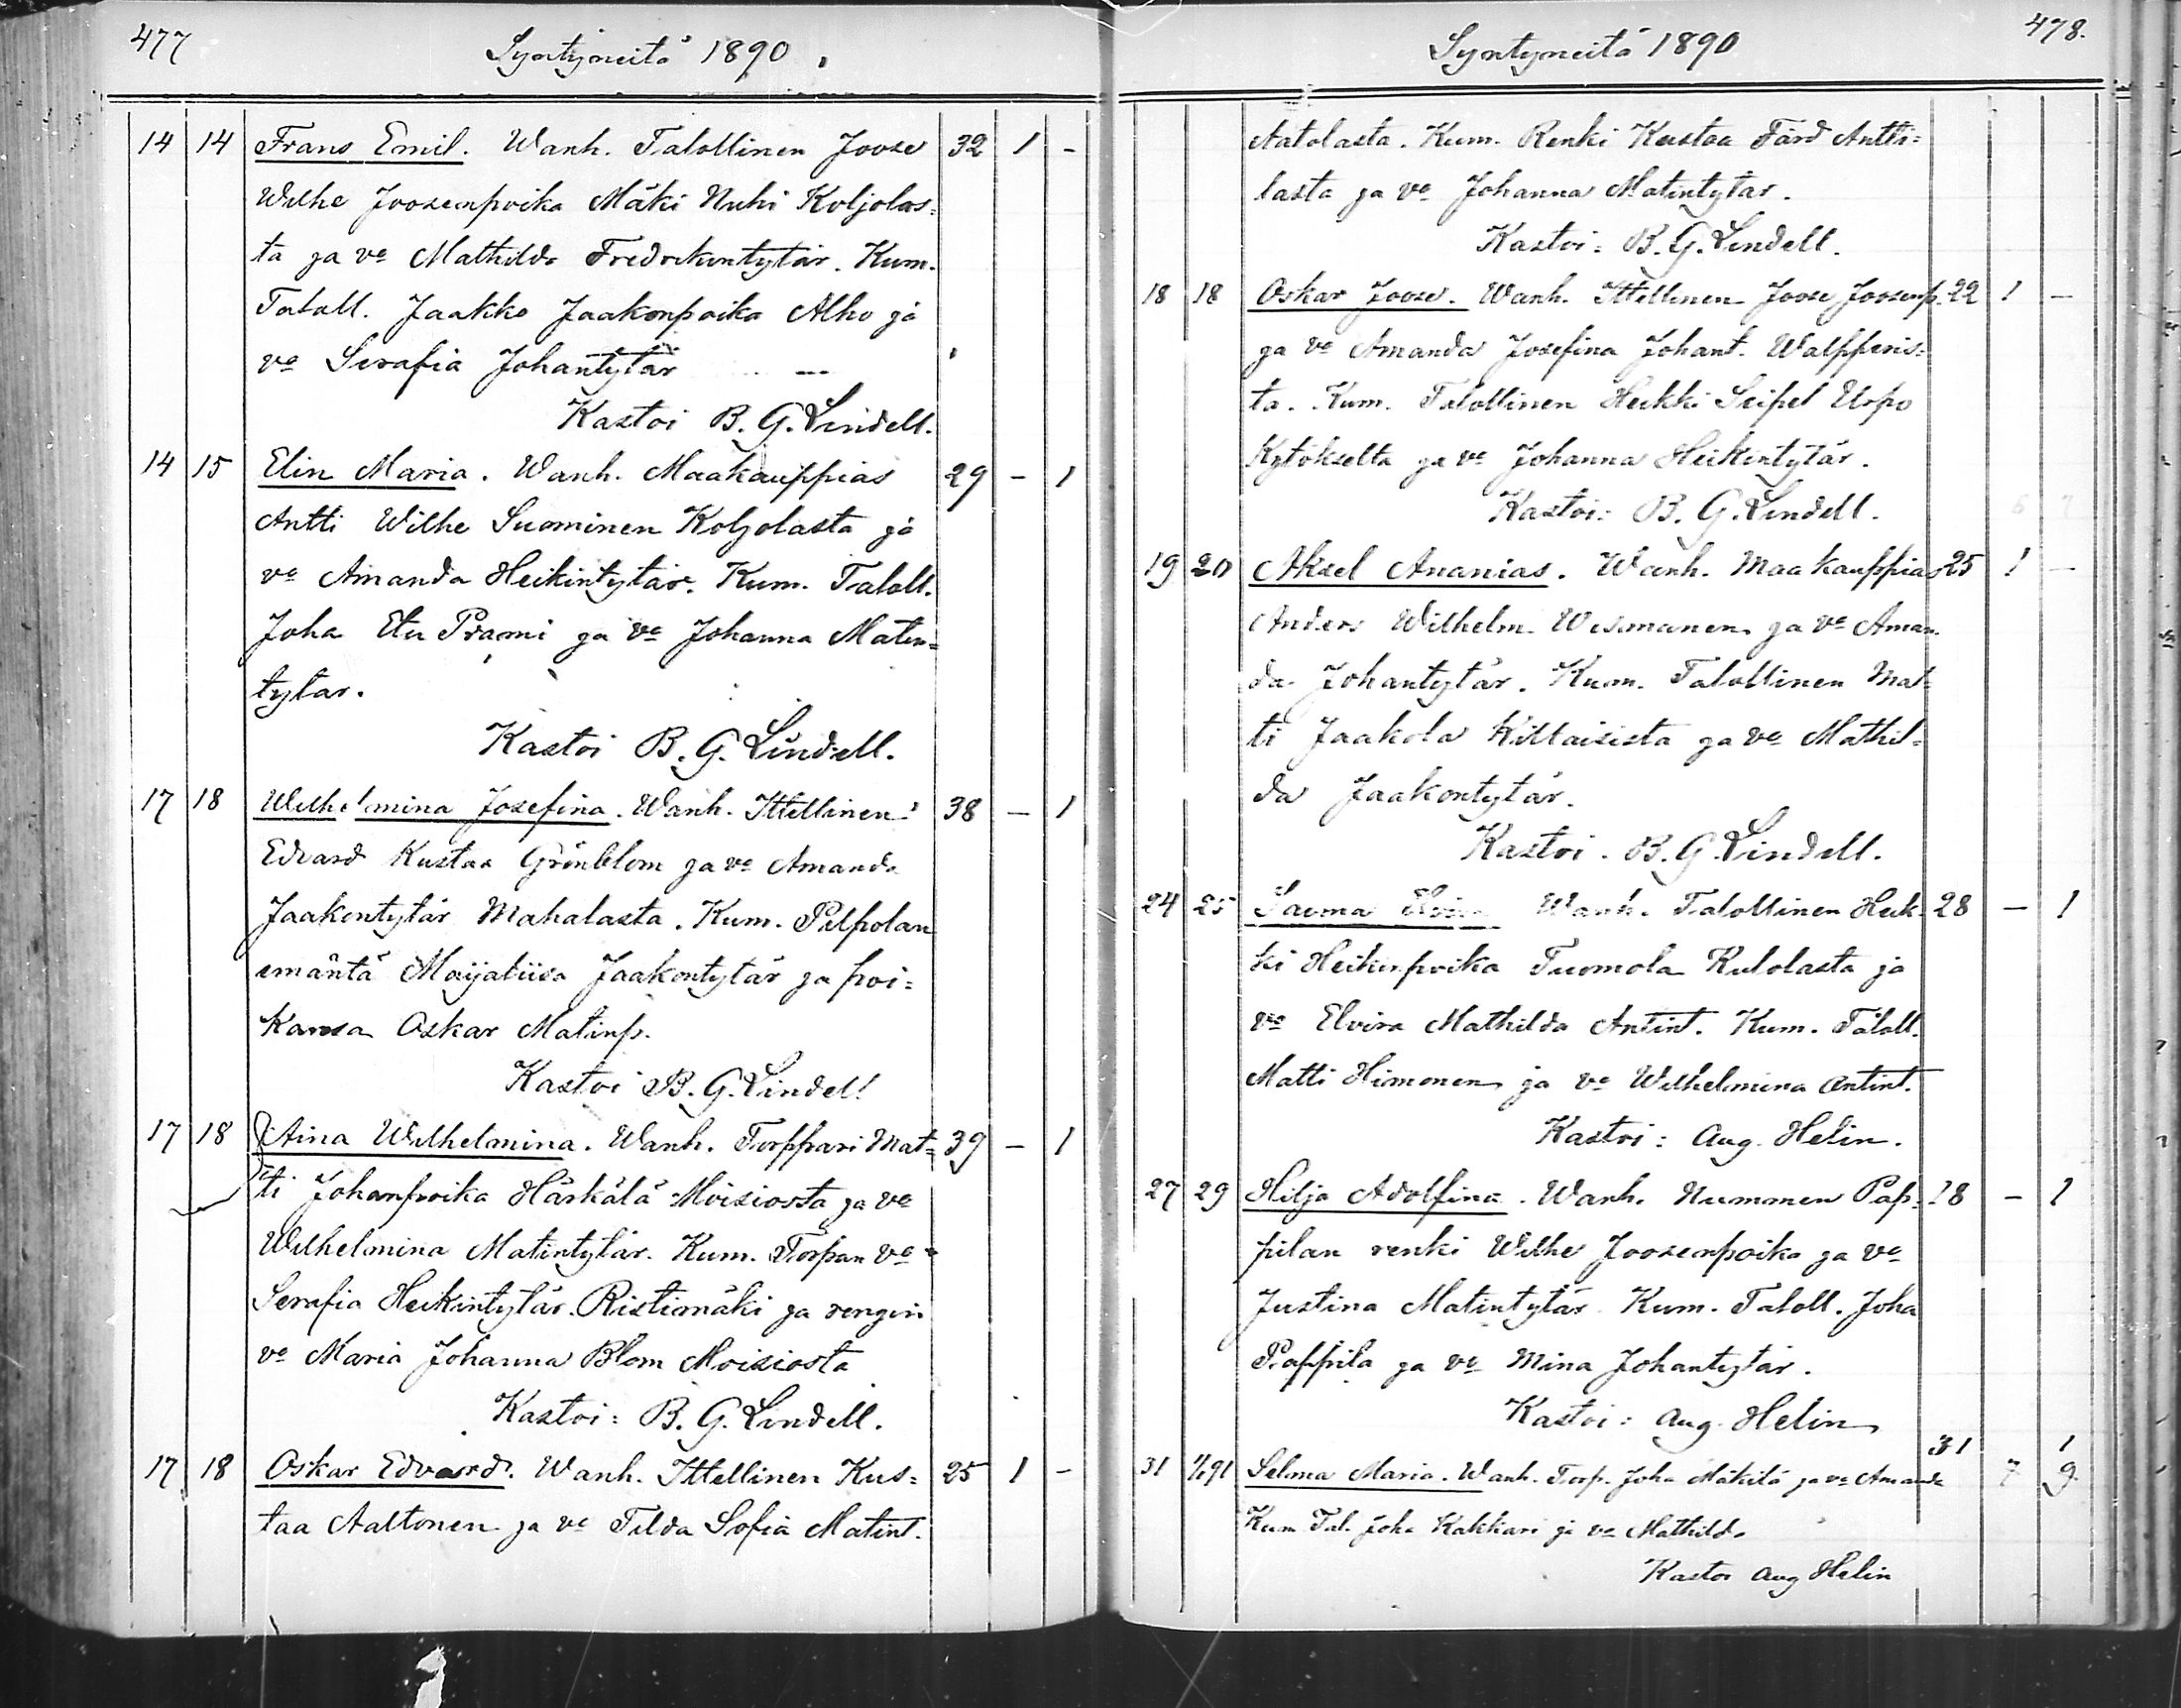 477
Syntyneitä 1890.
14 14 Frans Emil. Wanh. Talollinen Joose 32 1 -
Wilhe Joosenpoika Mäki Nuhi Koljolas=
ta ja vo Mathilda Fredrikintytär. Kum.
Taloll. Jaakko Jaakonpoika Alho ja
vo Serafia Johantytär
Kastoi B. G. Lindell.
14 15 Elin Maria. Wanh. Maakauppias 29 - 1
Antti Wilhe Suominen Koljolasta ja
vo Amanda Heikintytär. Kum. Taloll.
Joha Etu Prami ja vo Johanna Matin=
tytar.
Kastoi B. G. Lindell.
17 18 Wilhelmina Josefina. Wanh. Ittellinen 38 - 1
Edvard Kustaa Grönblom ja vo Amanda
Jaakontytär Mahalasta. Kum. Pelpolan
emäntä Maijaliisa Jaakontytär ja poi=
kansa Oskar Matinp.
Kastoi B. G. Lindell
17 18 Aina Wilhelmina. Wanh. Torppari Mat= 39 - 1
ti Johanpoika Härkälä Moisiosta ja vo
Wilhelmina Matintytär. Kum. Torpan vo
Serafia Heikintytär Ristimäki ja rengin
vo Maria Johanna Blom Moisiosta
Kastoi: B. G. Lindell.
17 18 Oskar Edvard. Wanh. Ittellinen Kus= 25 1 -
taa Aaltonen ja vo Tilda Sofia Matint.
478.
Syntyneitä 1890
Aatolasta. Kum. Renki Kustaa Färd Antti=
lasta ja vo Johanna Matintytar.
Kastoi: B. G. Lindell.
18 18 Oskar Joose. Wanh. Ittellinen Joose Joosenp. 22 1 -
ja vo Amanda Josefina Johant. Walpperis=
ta. Kum. Talollinen Heikki Seipel Urpo
Kytökseltä ja vo Johanna Heikintytär.
Kastoi: B. G. Lindell.
19 20 Aksel Ananias. Wanh. Maakauppias 25 1 -
Anders Wilhelm Wesmanen ja vo Aman-
da Johantytär. Kum. Talollinen Mat=
ti Jaakola Killaisista ja vo Mathil=
da Jaakontytär.
Kastoi. B. G. Lindell.
24 25 Saima Wanh. Talollinen Heik- 28 - 1
ki Heikinpoika Tuomola Kulolasta ja
vo Elvira Mathilda Antint. Kum. Taloll.
Matti Himonen ja vo Wilhelmina Antint.
Kastoi: Aug. Helin.
27 29 Hilja Adolfina. Wanh. Nummen Pap- 18 - 1
pilan renki Wilhe Joosenpoika ja vo
Justina Matintytär Kum. Taloll. Joha
Pappila ja vo Mina Johantytär.
Kastoi: Aug. Helin
31 1/1 91 Selma Maria. Wanh. Torp. Joha Mäkilä ja vo Amanda 31 - 1
7 9
Kum Tal. Joha Kakkari ja vo Mathilda
Kastoi Aug Helin